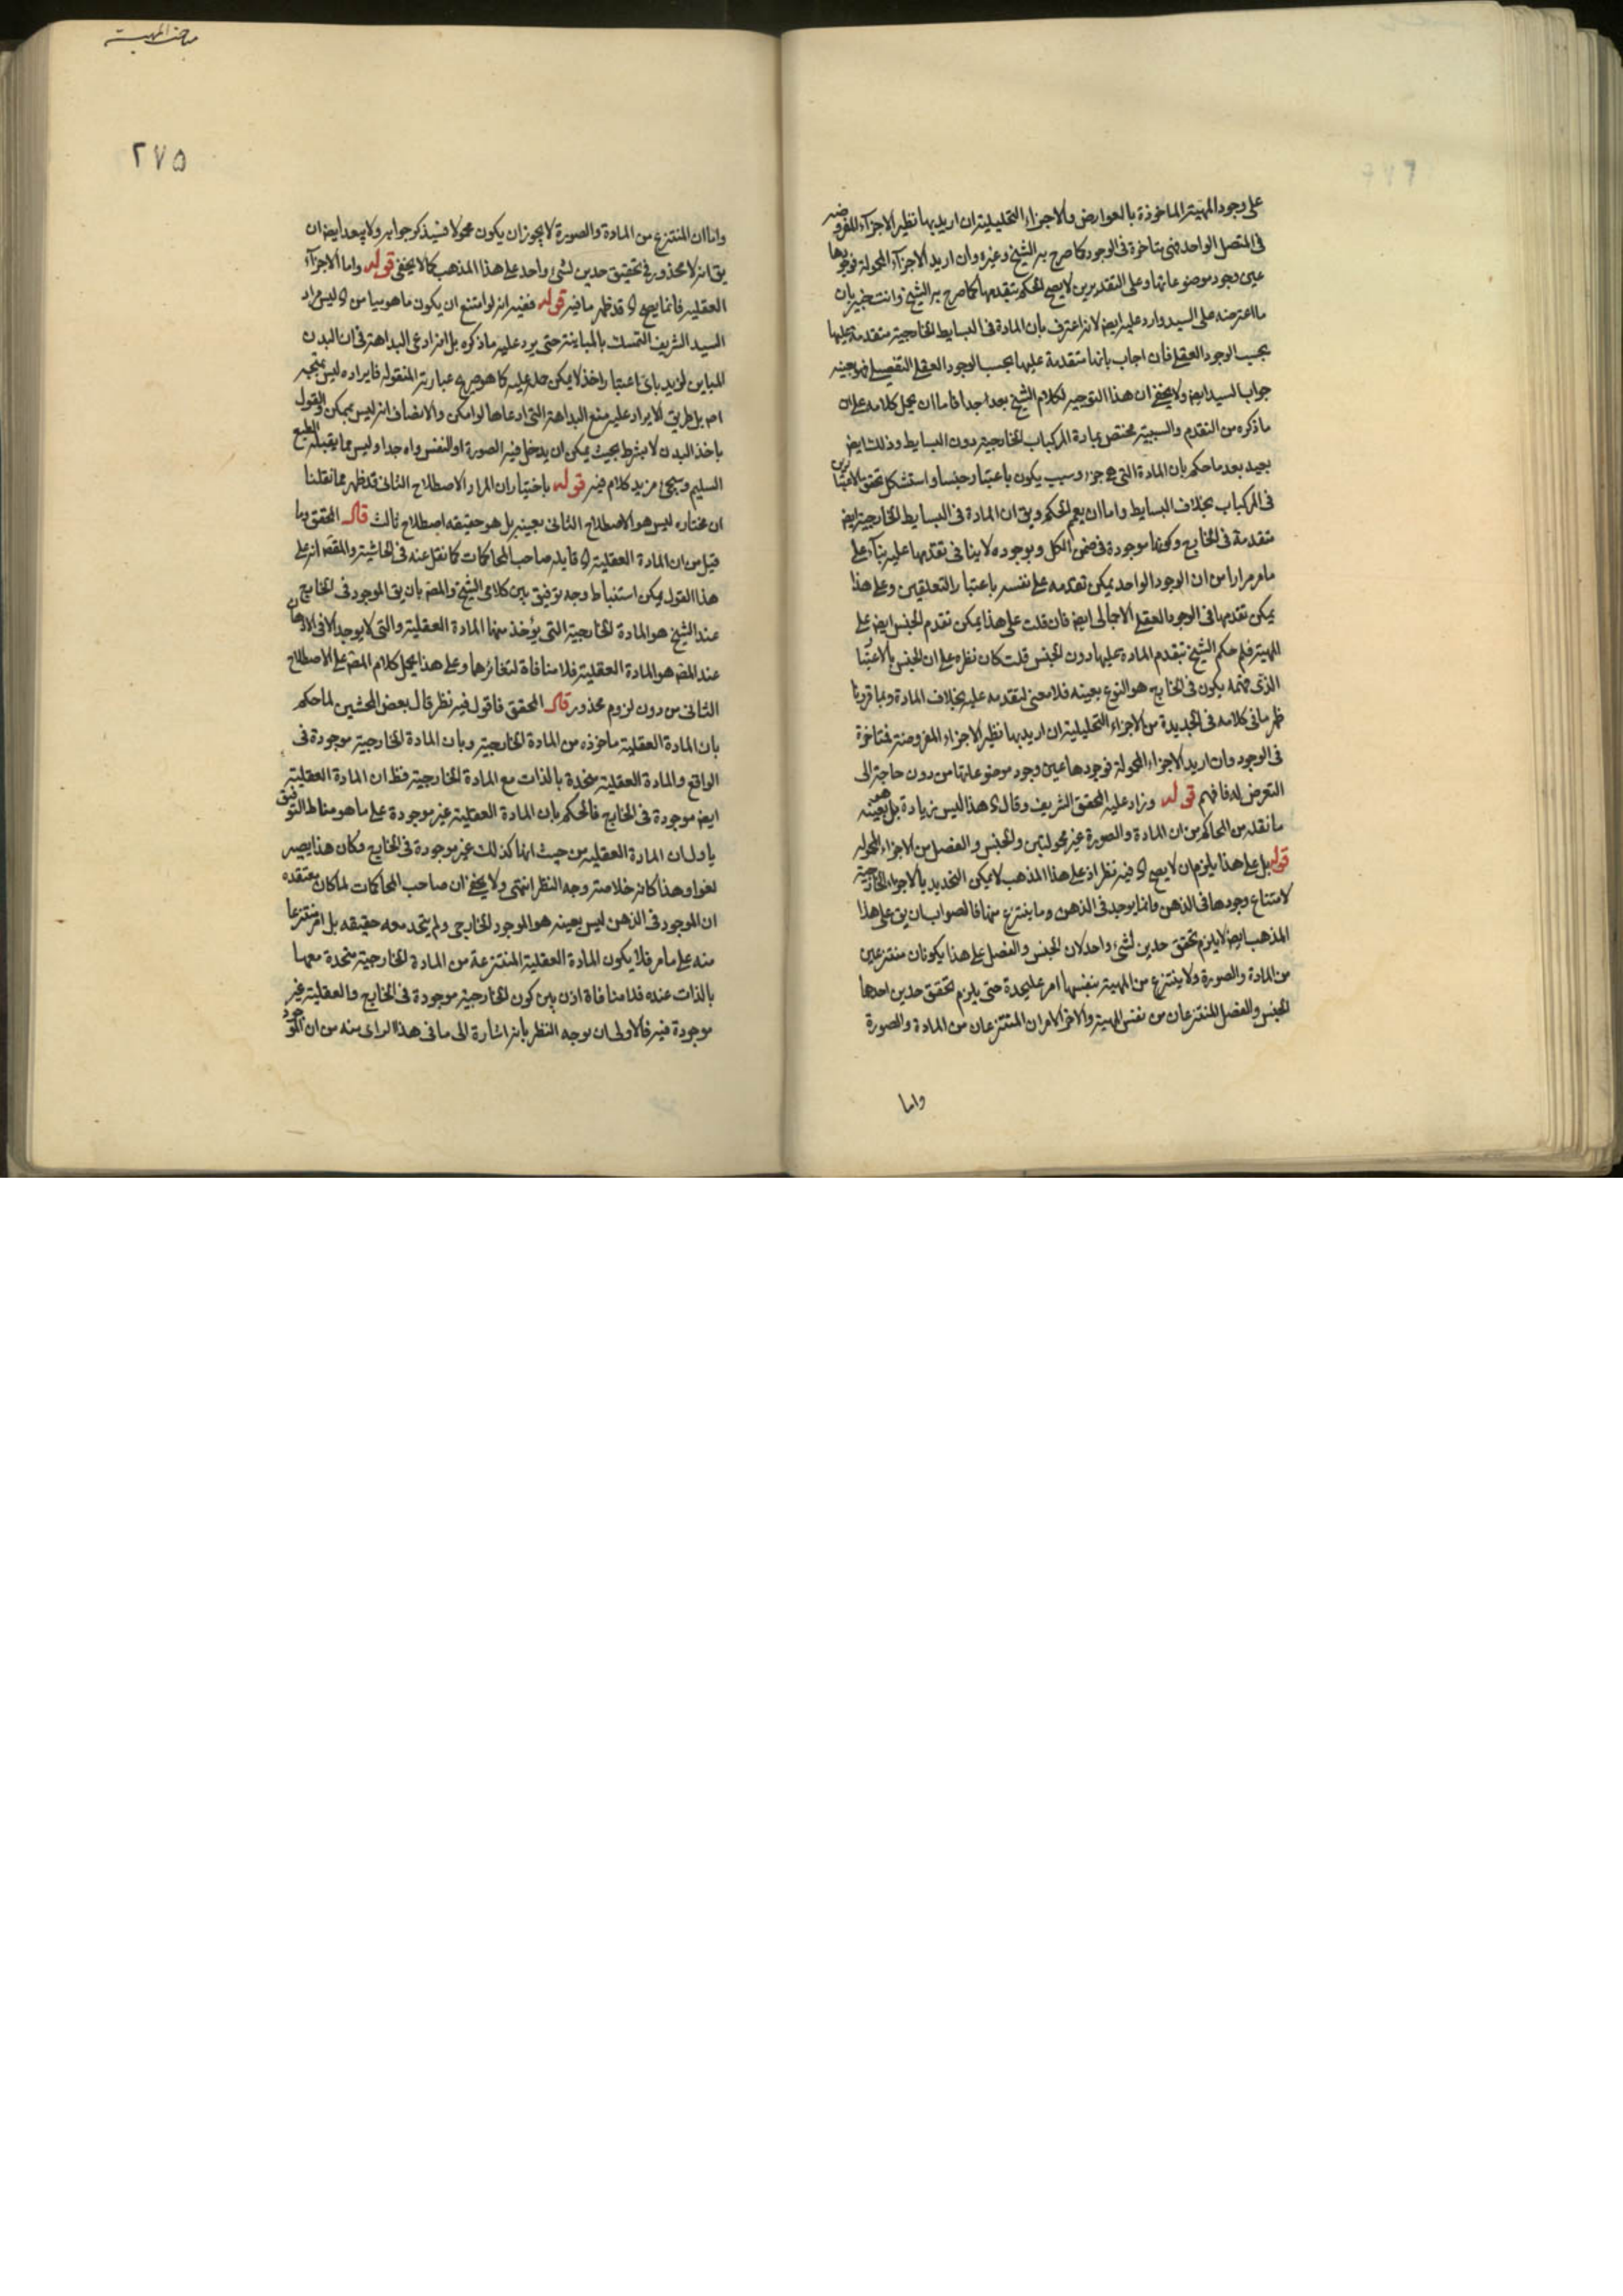 على وجود المهية الماخوذة بالعوارض والاجزاء التحليلية ان اريد بها نظير الاجزاء المفروضه
فى المتصل الواحد فهى متاخرة فى الوجود كما صرح به الشيخ وغيره وان اريد الاجزاء المحمولة فوجودها
عين وجود موضوعاتها وعلى التقديرين لا يصح الحكم بتقدمها كما صرح به الشيخ وانت خبير بان
ما اعترضه على السيد وارد عليه ايض لانه اعترف بان المادة فى البسايط الخارجية متقدمة عليها
بحسب الوجود العقلى فان اجاب بانها متقدمة عليها بحسب الوجود العقلى التفصيلى فهو بعينه
جواب السيد ايض ولا يخفى ان هذا التوجيه لكلام الشيخ بعيد جدا فاما ان يحمل كلامه على ان
ما ذكره من التقدم والسببية مختص بمادة المركبات الخارجية دون البسايط وذلك ايض
بعيد بعد ما حكم بان المادة التى هى جزء وسبب يكون باعتبار جنسا واستشكل تحقق الاعتبارين
فى المركبات بخلاف البسايط واما ان يعم الحكم ويق ان المادة فى البسايط الخارجية ايض
متقدمة فى الخارج وكونها موجودة فى ضمن الكل وبوجوده لا ينافى تقدمها عليه بناء على
ما مر مرارا من ان الوجود الواحد يمكن تقدمه على نفسه باعتبار التعلقين وعلى هذا
يمكن تقدمها فى الوجود العقلى الاجمالى ايض فان قلت على هذا يمكن تقدم الجنس ايض على
المهية فلم حكم الشيخ بتقدم المادة عليها دون الجنس قلت كان نظره على ان الجنس بالاعتبار
الذى يكون فى الخارج هو النوع بعينه فلا معنى لتقدمه عليه بخلاف المادة وبما قررنا
ظهر ما فى كلامه فى الجديدة من الاجزاء التحليلية ان اريد بها نظير الاجزاء المفروضة فمتاخرة
فى الوجود وان اريد الاجزاء المحمولة فوجودها عين وجود موضوعاتها من دون حاجة الى
التعرض له فافهم قوله وزاد عليه المحقق الشريف وقال هذا ليس زيادة بل بعينه
ما نقله من المحاكم من ان المادة والصورة غير محمولتين والجنس والفصل من الاجزاء المحمولة
قوله بل على هذا يلزم ان لا يصح فيه نظر اذ على هذا المذهب لا يمكن التحديد بالاجزاء الخارجية
لامتناع وجودها فى الذهن وانما يوجد فى الذهن وما ينتزع منها فالصواب ان يق على هذا
المذهب ايض لا يلزم تحقق حدين لشئ واحد لان الجنس والفصل على هذا يكونان منتزعين
من المادة والصورة ولا ينتزع من المهية بنفسها امر عليحدة حتى يلزم تحقق حدين احدها
الجنس والفصل المنتزعان من نفس المهية والاخر الامران المنتزعان من المادة والصورة
واما
مباحث المهية
٢٧٥
واما ان المنتزع من المادة والصورة لا يجوز ان يكون محمولا فسيذكر جوابه ولا يبعد ايض ان
يق انه لا محذور فى تحقيق حدين لشئ واحد على هذا المذهب كما لا يخفى قوله واما الاجزاء
العقلية فانما يصح قد ظهر ما فيه قوله ففيه انه لو امتنع ان يكون ما هو مباين ليس مراد
السيد الشريف التمسك بالمباينة حتى يرد عليه ما ذكره بل انه ادعى البداهة فى ان البدن
المباين لزيد باى اعتبار اخذ لا يمكن حمله عليه كما هو صريح عبارته المنقولة فايراده ليس بمتجه
اصلا بل طريق الايراد عليه منع البداهة التى ادعاها لو امكن والانصاف انه ليس بممكن والقول
باخذ البدن لا بشرط بحيث يمكن ان يدخل فيه الصورة او النفس واه جدا وليس مما يقبله الطبع
السليم وسيجئ مزيد كلام فيه قوله باختيار ان المراد الاصطلاح الثانى قد ظهر مما نقلنا
ان مختاره ليس هو الاصطلاح الثانى بعينه بل هو حقيقه اصطلاح ثالث قال المحقق وما
قيل من ان المادة العقلية قايله صاحب المحاكمات كما نقل عنه فى الحاشية والمقص انه على
هذا القول يمكن استنباط وجه توفيق بين كلامى الشيخ والمص بان يق الموجود فى الخارج
عند الشيخ هو المادة الخارجية التى يؤخذ منها المادة العقلية والتى لا يوجد الا فى الاذهان
عند المص هو المادة العقلية فلا منافاة لتغايرها وعلى هذا يحمل كلام المص على الاصطلاح
الثانى من دون لزوم محذور قال المحقق فاقول فيه نظر قال بعض المحشين لما حكم
بان المادة العقلية ماخوذه من المادة الخارجية وبان المادة الخارجية موجودة فى
الواقع والمادة العقلية متحدة بالذات مع المادة الخارجية فظ ان المادة العقلية
ايض موجودة فى الخارج فالحكم بان المادة العقلية غير موجودة على ما هو مناط التوفيق
ياول بان المادة العقلية من حيث انها كذلك غير موجودة فى الخارج وكان هذا يصير
لغوا وهذا كانه خلاصة وجه النظر انتهى ولا يخفى ان صاحب المحاكمات لما كان معتقده
ان الموجود فى الذهن ليس بعينه هو الموجود الخارجى ولم يتحد معه حقيقه بل امر منتزعا
منه على ما مر فلا يكون المادة العقلية المنتزعة من المادة الخارجية متحدة معها
بالذات عنده فلا منافاة اذن بين كون الخارجية موجودة فى الخارج والعقلية غير
موجودة فيه فالاولى ان يوجه النظر بانه اشارة الى ما فى هذا الراى منه من ان الموجود